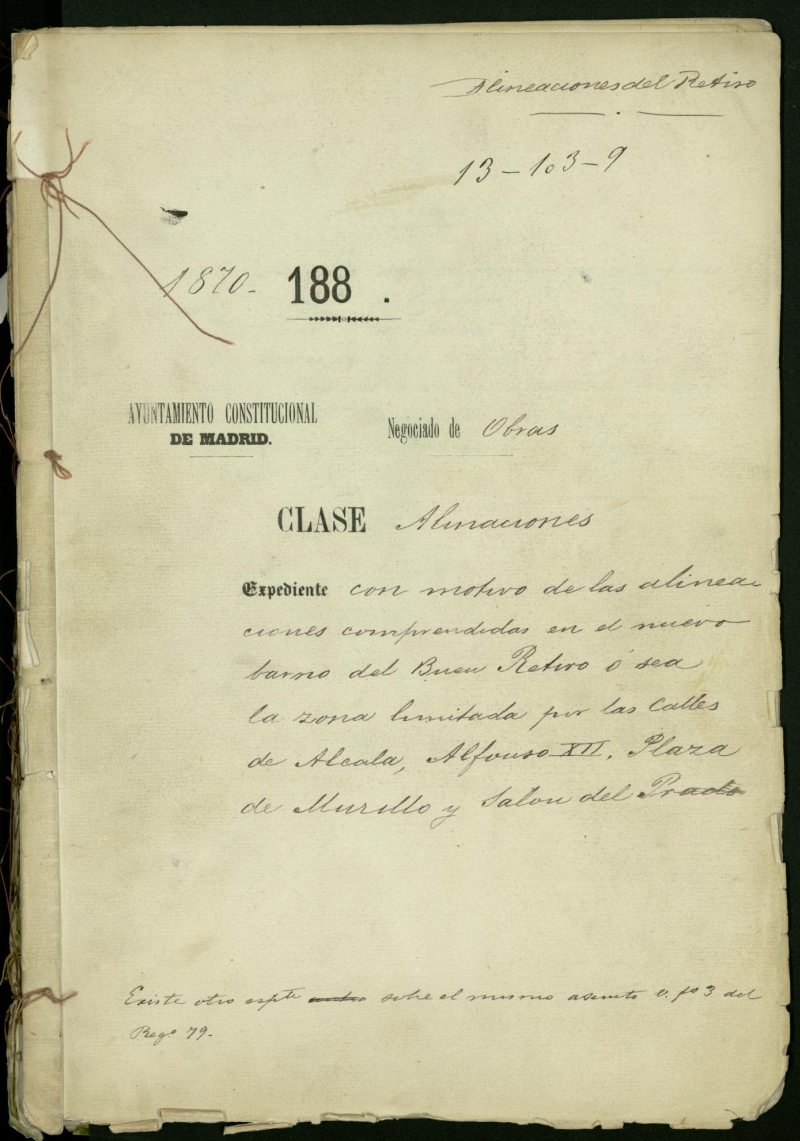 Alineaciones del Retiro
13-103-9
1870- 188 .
AYUNTAMIENTO CONSTITUCIONAL
DE MADRID.
Negociado de Obras
CLASE Alinaciones
Expediente con motivo de las alinea-
ciones comprendidas en el nuevo
barrio del Buen Retiro ó sea
la zona limitada por las Calles
de Alcala, Alfonso XII, Plaza
de Murillo y Salon del Prado
Existe otro espte sobre el mismo asunto v. fo 3 del
Rego 79.